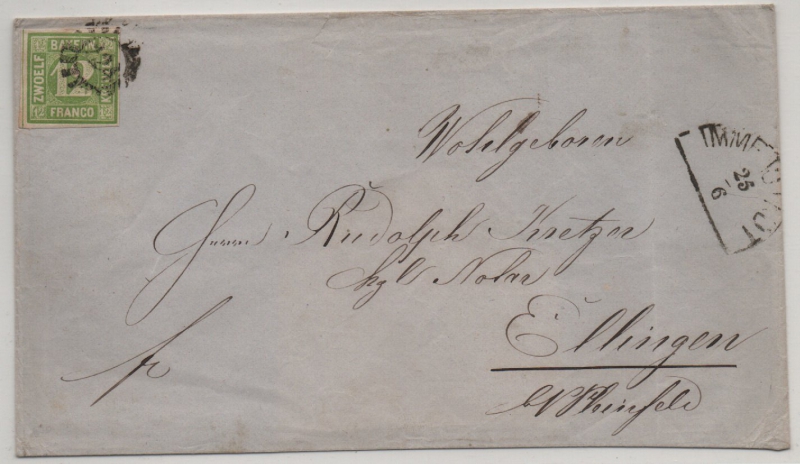 BAYERN
ZWOELF
12
FRANCO
Wohlgeboren
Herrn Rudolph Kretzer
kgl Notar
Ellingen
fr
IMMENSTADT
25
6